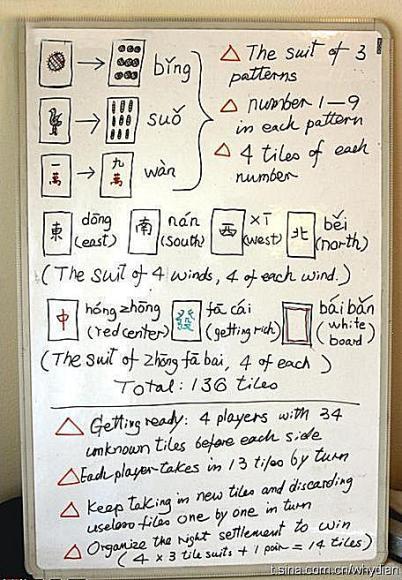 bǐng
△ The suit of 3
patterns
suǒ
△ number 1–9
in each pattern
一萬 → 九萬 wàn
△ 4 tiles of each
number
東 dōng 南 nán 西 xī 北 běi
(east) (south) (west) (north)
(The suit of 4 winds, 4 of each wind.)
中 hóng zhōng 發 fā cái bái bǎn
(red center) (getting rich) (white
board)
(The suit of zhōng fā bai, 4 of each)
Total: 136 tiles
△ Getting ready: 4 players with 34
unknown tiles before each side
△ Each player takes in 13 tiles by turn
△ Keep taking in new tiles and discarding
useless tiles one by one in turn
△ Organize the right settlement to win
(4 x 3 tile suits + 1 pair = 14 tiles)
t.sina.com.cn/whydian